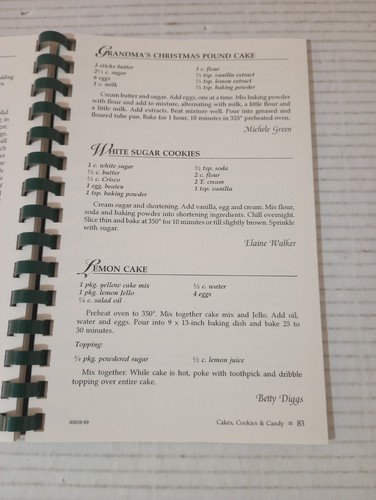 GRANDMA'S CHRISTMAS POUND CAKE
3 sticks butter
3 c. flour
c. sugar
½ tsp. vanilla extract
6 eggs
½ tsp. lemon extract
1 c. milk
½ tsp. baking powder
Cream butter and sugar. Add eggs, one at a time. Mix baking powder
with flour and add to mixture, alternating with milk, a little flour and
a little milk. Add extracts. Beat mixture well. Pour into greased and
floured tube pan. Bake for 1 hour, 10 minutes in 325° preheated oven.
Michele Green
WHITE SUGAR COOKIES
1 c. white sugar
½ tsp. soda
½ c. butter
2 c. flour
½ c. Crisco
2 T. cream
1 egg, beaten
1 tsp. vanilla
1 tsp. baking powder
Cream sugar and shortening. Add vanilla, egg and cream. Mix flour,
soda and baking powder into shortening ingredients. Chill overnight.
Slice thin and bake at 350° for 10 minutes or till slightly brown. Sprinkle
with sugar.
Elaine Walker
LEMON CAKE
1 pkg. yellow cake mix
c. water
1 pkg. lemon Jello
4 eggs
¾ c. salad oil
Preheat oven to 350°. Mix together cake mix and Jello. Add oil,
water and eggs. Pour into 9 x 13-inch baking dish and bake 25 to
30 minutes.
Topping:
pkg. powdered sugar
c. lemon juice
Mix together. While cake is hot, poke with toothpick and dribble
topping over entire cake.
Betty Diggs
30826-89
Cakes, Cookies & Candy ∞ 83